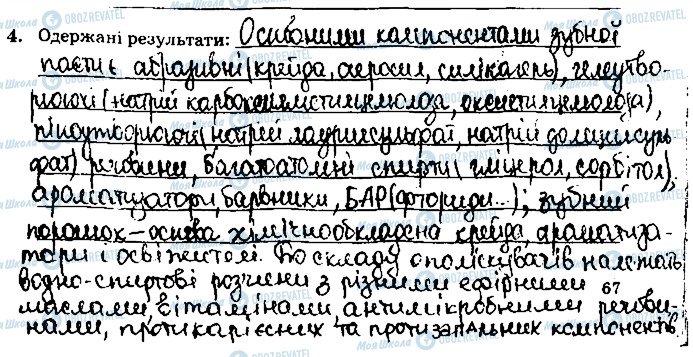 4. Одержані результати: Основними компонентами зубної
пасти є абразивні (крейда, аеросил, силікагель), гелеутво-
рюючі (натрій карбоксиметилцелюлоза, оксиетилцелюлоза),
піноутворюючі (натрій лаурилсульфат, натрій додецилсуль-
фат) речовини, багатоатомні спирти (гліцерол, сорбітол),
ароматизатори, барвники, БАР (фториди...); зубний
порошок – основа хімічнообкладена крейда, ароматиза-
тори і освіжителі. До складу ополіскувачів належать
водно-спиртові розчини з різними ефірними
67
маслами, вітамінами, антимікробними речови-
нами, протикарієсних та протизапальних компонентів